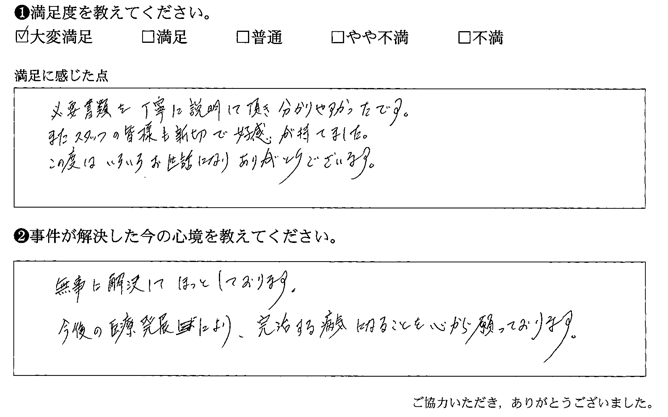 ❶満足度を教えてください。
☑大変満足 □満足 □普通 □やや不満 □不満
満足に感じた点
必要書類を丁寧に説明して頂き分かりやすかったです。
またスタッフの皆様も親切で好感が持てました。
この度はいろいろお世話になりありがとうございます。
❷事件が解決した今の心境を教えてください。
無事に解決してほっとしております。
今後の医療発展により、完治する病気になることを心から願っております。
ご協力いただき，ありがとうございました。